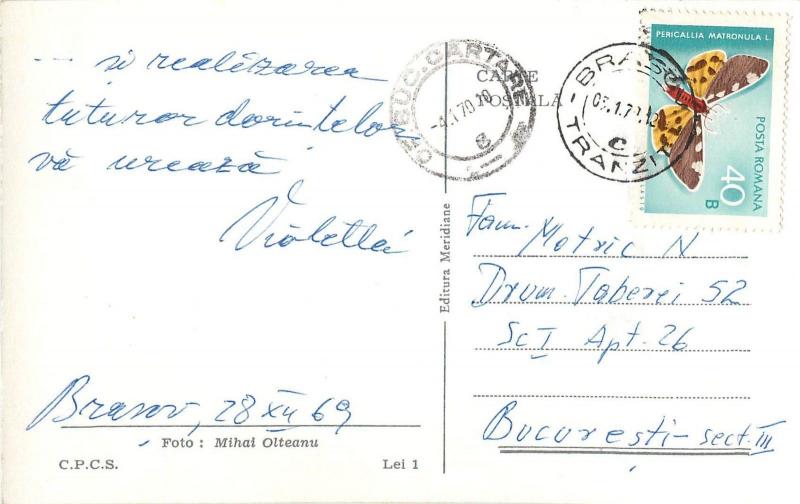 ... și realizarea
tuturor dorințelor
vă urează
Violetta
Brasov, 28 XII 69
Foto : Mihai Olteanu
C.P.C.S.
Lei 1
Editura Meridiane
CARTE
POSTALA
CARTARE
-4.1.70.10
BRASOV
03.1.70.12
C
TRANZIT
PERICALLIA MATRONULA L.
POSTA ROMANA
40 B
Fam. Motric N
Drum. Taberei 52
Sc I Apt. 26
București - sect. III